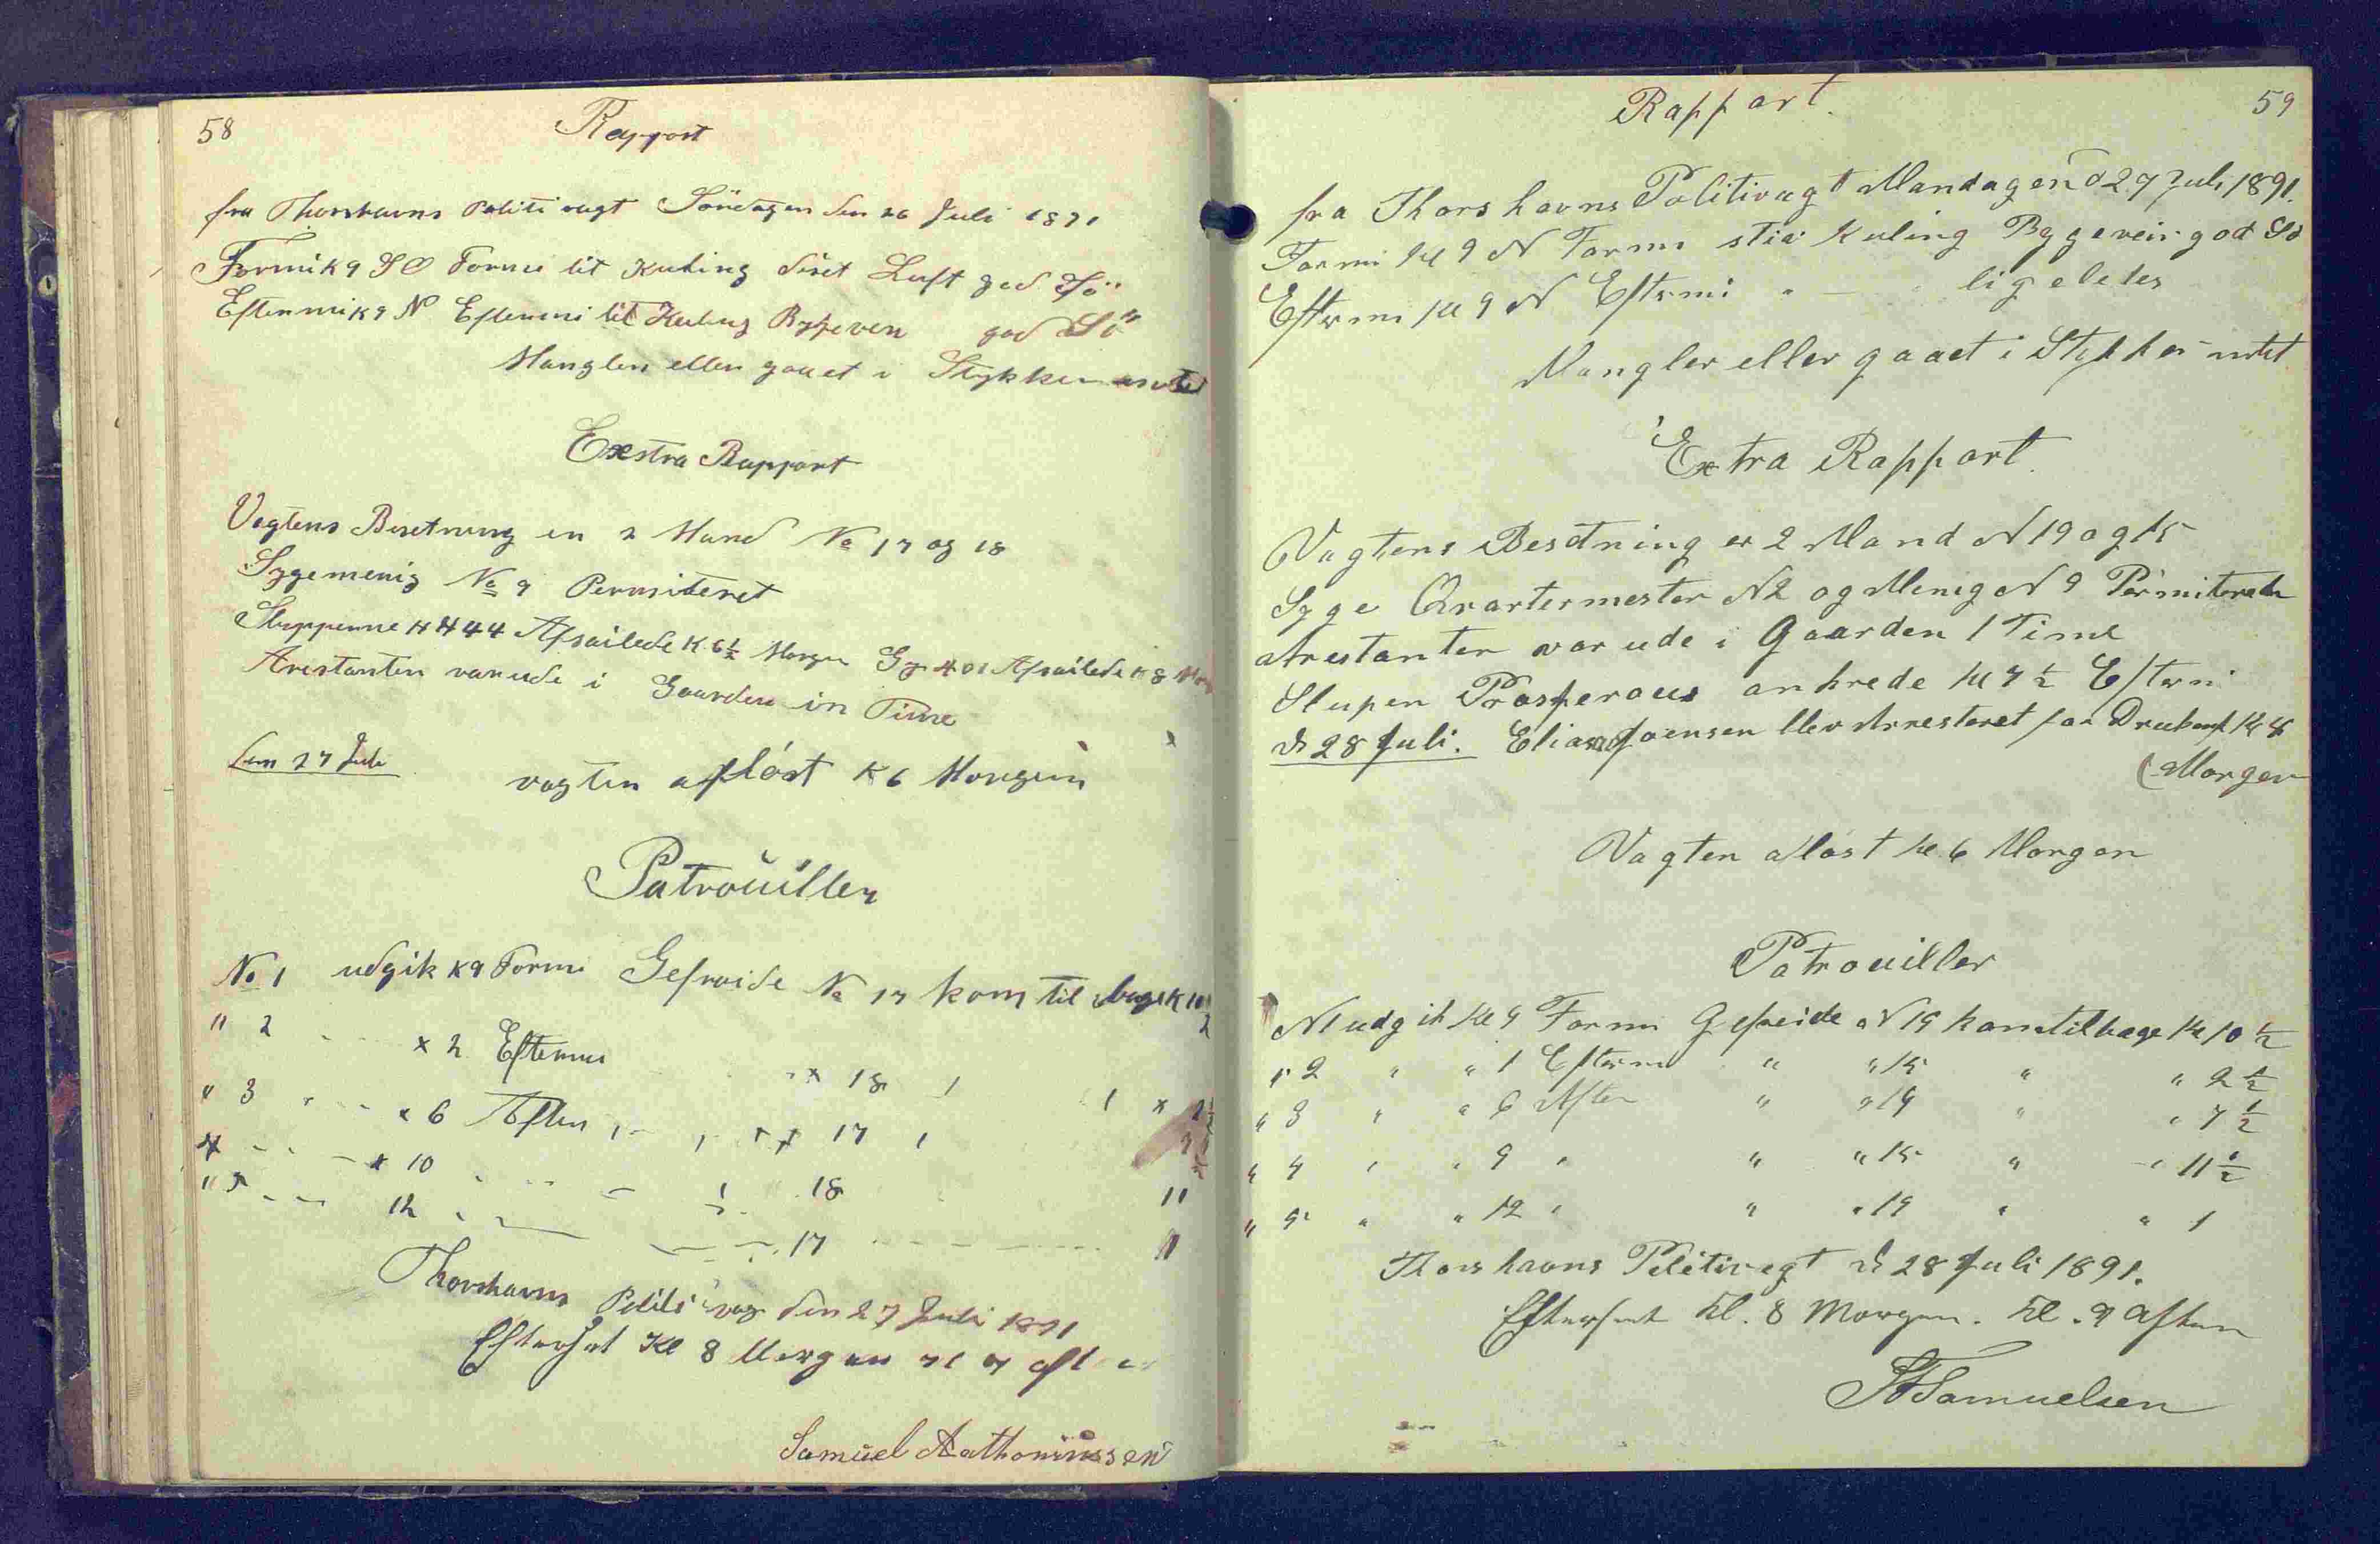 58
Rapport
fra Thorshavns Politi vagt Söndagen den 26 Juli 1891
Formi K 9 SO Formi lit Kuling diset Luft god Sö
Eftermi K 9 N Eftermi lit Kuling god Sö
Mangler eller gaaet i Stykker intet
Exstra Rapport
Vagtens Besetning en 2 Mand No 17 og 18
Sygemenig No 9 Permiteret
Sluppenne 444 Afsailede K 6½ Morgen 401 Afsailede K 8
Arestanten var ude i Gaarden in Time
den 27 Juli
vagten aflöst K 6 Morgen
Patrouiller
No 1 udgik K 9 Formi Gefreide No 17 kom til bage K 10½
" 2 2 Eftermi 18 2½
" 3 " 6 Aften 17 7½
4 10 18 11
" 5 12 17
Thorshavns Politi vag den 27 Juli 1891
Efterset Kl 8 Morgen
Samuel Aathoniussen
59
Rapport.
fra Thorshavns Politivagt Mandagen d 27 Juli 1891.
Formi Kl 9 N Formi stiv Kuling Bygeveir god Sö
Efterm Kl 9 N Eftermi " — ligeledes
Mangler eller gaaet i Stykker intet
Extra Rapport.
Vagtens Besetning er 2 Mand N 19 og 15
Syge Qvartermester N 2 og Menig N 9 Permiterede
Arestanten var ude i Gaarden 1 Time
Slupen Prosperous ankrede Kl 7½ Efterm
d 28 Juli. Elias Joensen blev Arresteret for Kl 4
(Morgen
Vagten aflöst Kl 6 Morgen
Patrouiller
N 1 udgik Kl 9 Formi Gefreide N 19 kom tilbage Kl 10½
" 2 " " 1 Efterm " " 15 " " 2½
" 3 " " 6 Aften " " 19 " " 7½
" 4 " " 9 " " " 15 " " 11½
" 5 " " 12 " " " 19 " " 1
Thorshavns Politivagt d 28 Juli 1891.
Efterset Kl. 8 Morgen. Kl. 9 Aften
Samuelsen